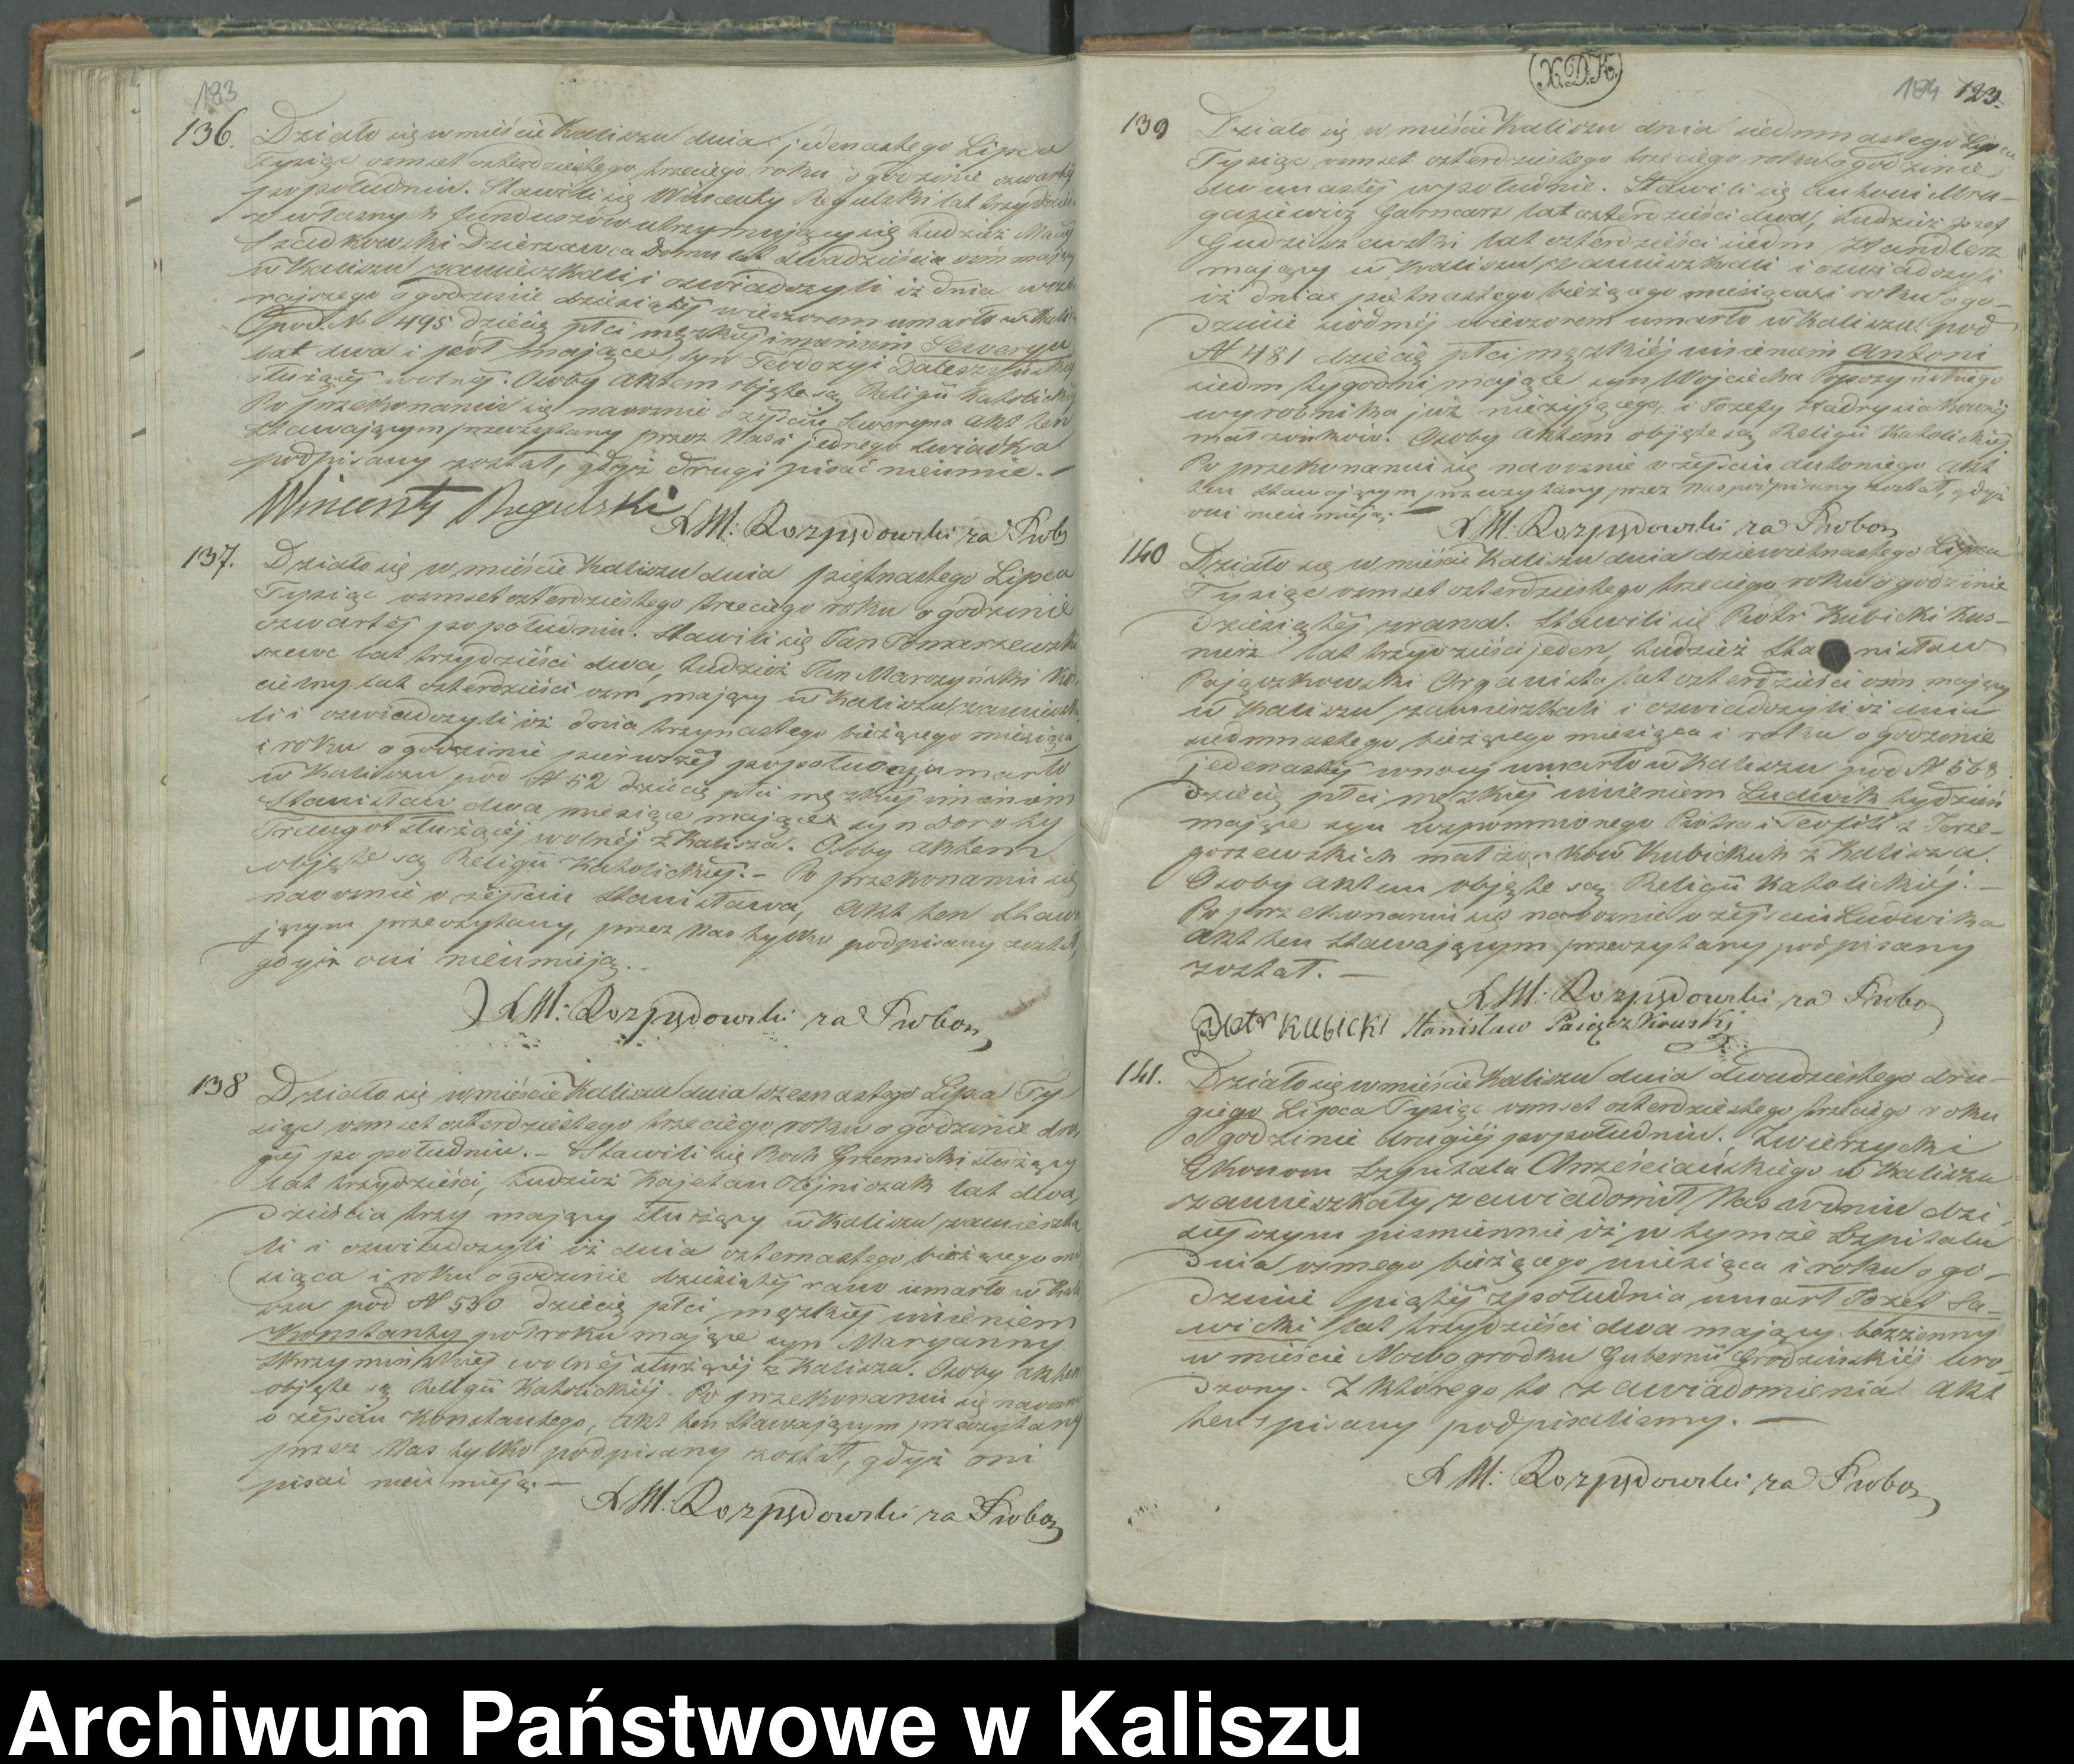 183
136. Działo się w mieście Kaliszu dnia jedenastego Lipca
Tysiąc ośmset czterdziestego trzeciego roku o godzinie czwartéj
po południu. Stawili się Wincenty Regulski lat trzydzieści
z własnych funduszów utrzymujący się tudzież Maciej
Szadkowski Dzierżawca Domu lat dwadzieścia ośm mający
w Kaliszu zamieszkali i oświadczyli iż dnia wczo
rajszego o godzinie dziesiątéj wieczorem umarło w Kaliszu
pod No 495 dziecię płci męzkiéj imieniem Seweryn
lat dwa i pół mające, syn Teodozyi Daleszyńskiéj
służącéj wolnéj. Osoby Aktem objęte są Religii Katolickiéj
Po przekonaniu się naocznie o zejściu Seweryna Akt ten
stawającym przeczytany przez Nas i jednego świadka
podpisany został, gdyż drugi pisać nieumie. –
Wincenty Regulski
X M: Rozpędowski za Prob
137. Działo się w mieście Kaliszu dnia piętnastego Lipca
Tysiąc ośmset czterdziestego trzeciego roku o godzinie
czwartéj po południu. Stawili się Jan Pomarzewski
szewc lat trzydzieści dwa, tudzież Jan Marczyński Koś
cielny lat czterdzieści ośm mający w Kaliszu zamieszka
li i oświadczyli iż dnia trzynastego bieżącego miesiąca
i roku o godzinie pierwszéj popołudniu umarło
w Kaliszu pod N 52 dziecię płci męzkiéj imieniem
Stanisław dwa miesiące mające syn Doroty
Traugot służącéj wolnéj z Kalisza. Osoby Aktem
objęte są Religii Katolickiéj. – Po przekonaniu się
naocznie o zejściu Stanisława, Akt ten stawa
jącym przeczytany, przez Nas tylko podpisany został,
gdyż oni nieumieją.
X M: Rozpędowski za Probos
138 Działo się w mieście Kaliszu dnia szesnastego Lipca Ty
siąc ośmset czterdziestego trzeciego roku o godzinie dru
giéj po południu. – Stawili się Roch Grzemicki służący
lat trzydzieści, tudzież Kajetan Olejniczak lat dwa
dzieścia trzy mający służący w Kaliszu zamieszka
li i oświadczyli iż dnia czternastego bieżącego mie
siąca i roku o godzinie dziesiątéj rano umarło w Kali
szu pod N 530 dziecię płci męzkiéj imieniem
Konstanty pół roku mające syn Maryanny
Skrzymińskiéj wolnéj służącéj z Kalisza. Osoby Aktem
objęte są Religii Katolickiéj. Po przekonaniu się naocznie
o zejściu Konstantego, Akt ten stawającym przeczytany
przez Nas tylko podpisany został, gdyż oni
pisać nieumieją. –
X M: Rozpędowski za Probos
X.D.K.
184 123.
139 Działo się w mieście Kaliszu dnia siedmnastego Lipca
Tysiąc ośmset czterdziestego trzeciego roku o godzinie
dwunastéj w południe. Stawili się Antoni Mru-
gasiewicz Garncarz lat czterdzieści dwa, tudzież Józef
Gudziszewski lat czterdzieści siedm Handlerz
mający w Kaliszu zamieszkali i oświadczyli
iż dnia piętnastego bieżącego miesiąca i roku o go-
dzinie siódméj wieczorem umarło w Kaliszu pod
N 481 dziecię płci męzkiéj imieniem Antoni
siedm tygodni mające syn Wojciecha Poprzyńskiego
wyrobnika już nieżyjącego, i Józefy Hadrysiakownéj
małżonków. Osoby Aktem objęte są Religii Katolickiéj
Po przekonaniu się naocznie o zejściu Antoniego Akt
ten stawającym przeczytany przez Nas podpisany został, gdyż
oni nieumieją. –
X M: Rozpędowski za Probos
140 Działo się w mieście Kaliszu dnia dziewietnastego Lipca
Tysiąc ośmset czterdziestego trzeciego roku o godzinie
dziesiątéj zrana. Stawili się Piotr Kubicki Kuś-
nierz lat trzydzieści jeden, tudzież Sta nisław
Pajączkowski Organista lat czterdzieści ośm mający
w Kaliszu zamieszkali i oświadczyli iż dnia
siedmnastego bieżącego miesiąca i roku o godzinie
jedenastéj w nocy umarło w Kaliszu pod N 568
dziecię płci męzkiéj imieniem Ludwik tydzień
mające syn wspomnionego Piotra i Teofili z Jerze-
gorzewskich małżonków Kubickich z Kalisza.
Osoby Aktem objęte są Religii Katolickiéj. –
Po przekonaniu się naocznie o zejściu Ludwika
Akt ten stawającym przeczytany podpisany
został. –
X M: Rozpędowski za Probo
Piotr Kubicki Stanisław Paiączkowski
141. Działo się w mieście Kaliszu dnia dwudziestego dru-
giego Lipca Tysiąc ośmset czterdziestego trzeciego roku
o godzinie drugiéj po południu. Zwierzycki
Ekonom Szpitala Chrześciańskiego w Kaliszu
zamieszkały zawiadomił Nas w dniu dzi
siéjszym piśmiennie iż w tymże Szpitalu
dnia ósmego bieżącego miesiąca i roku o go-
dzinie piątéj z południa umarł Józef Sa-
wicki lat trzydzieści dwa mający bezżenny
w mieście Nowogrodku Gubernii Grodzińskiéj uro
dzony. Z którego to zawiadomienia Akt
ten spisany podpisaliśmy. –
X M: Rozpędowski za Probos
Archiwum Państwowe w Kaliszu